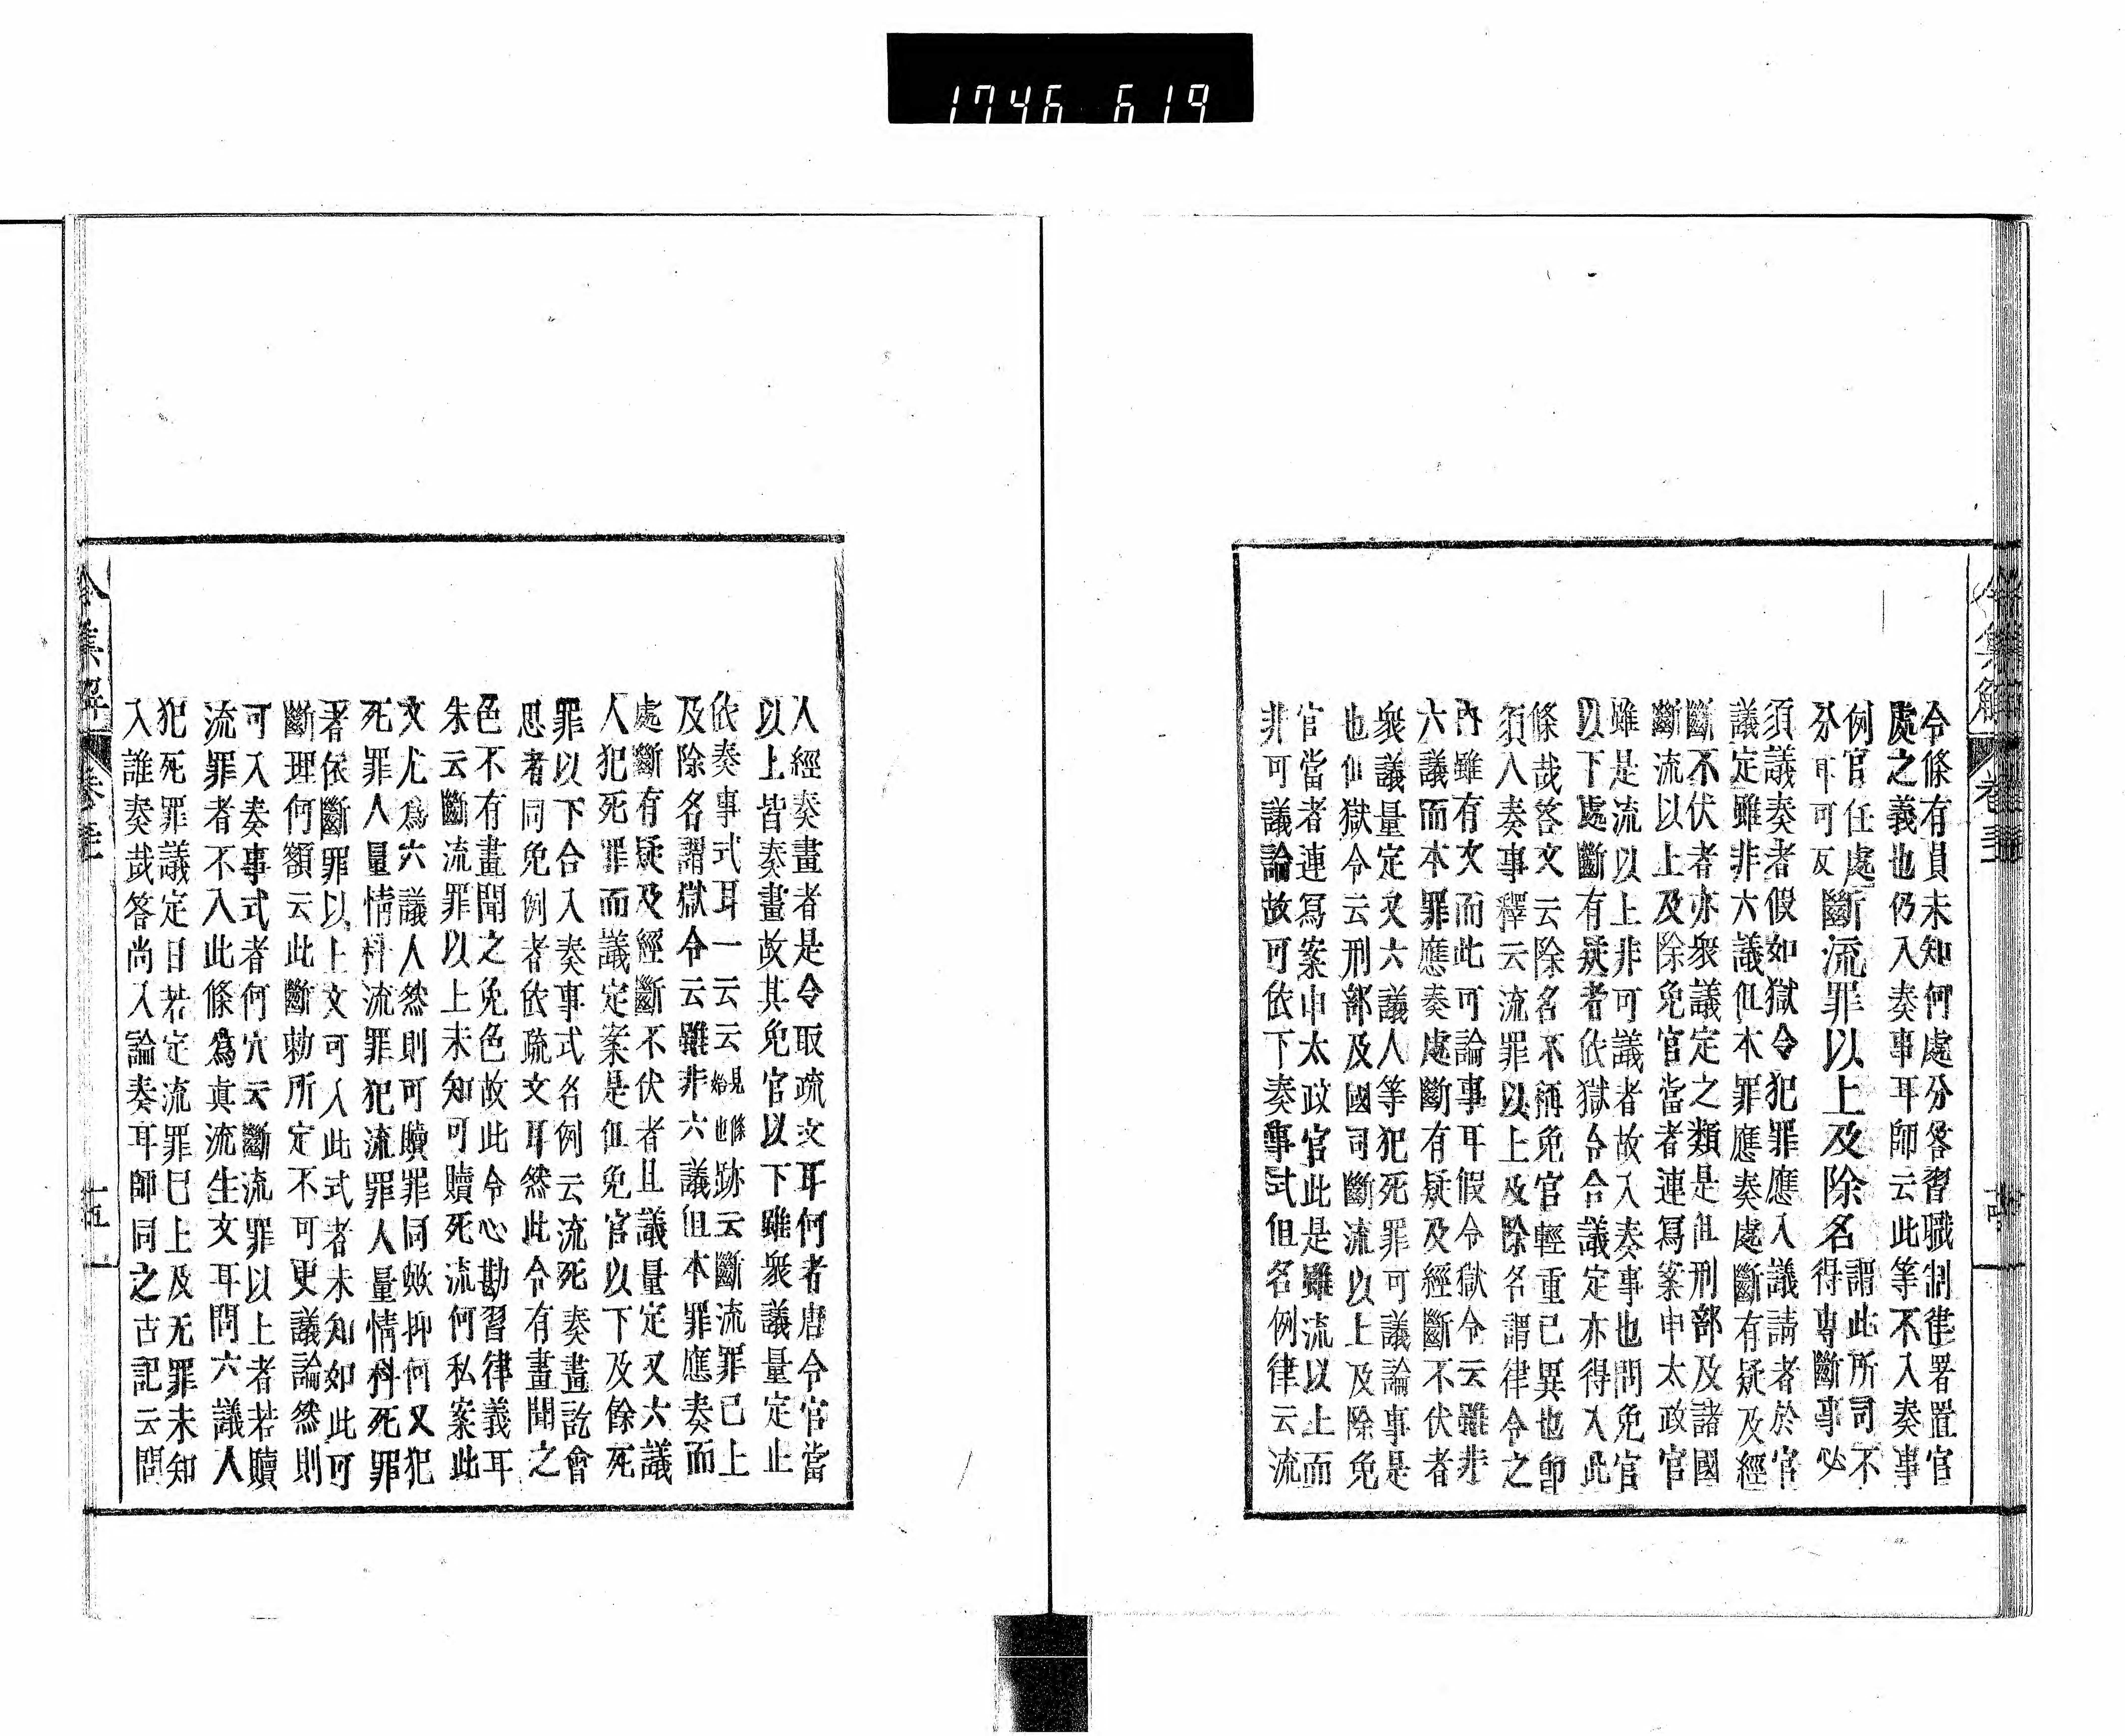 1746 619
令條有員未知何處分答習職制律署置官
處之義也仍入奏事耳師云此等不入奏事
例官任處斷流罪以上及除名謂此所司不
分耳可反得專斷事必
須議奏者假如獄令犯罪應入議請者於官
議定雖非六議但本罪應奏處斷有疑及經
斷不伏者亦衆議定之類是但刑部及諸國
斷流以上及除免官當者連寫案申太政官
雖是流以上非可議者故入奏事也問免官
以下處斷有疑者依獄令合議定亦得入此
條哉答文云除名不稱免官輕重已異也卽
須入奏事釋云流罪以上及除名謂律令之
內雖有文而此可論事耳假令獄令云雖非
六議而本罪應奏處斷有疑及經斷不伏者
衆議量定又六議人等犯死罪可議論事是
也但獄令云刑部及國司斷流以上及除免
官當者連寫案申太政官此是雖流以上而
非可議論故可依下奏事式但名例律云流
人經奏畫者是令取疏文耳何者唐令官當
以上皆奏畫故其免官以下雖衆議量定止
依奏事式耳一云云見條始也跡云斷流罪已上
及除名謂獄令云雖非六議但本罪應奏而
處斷有疑及經斷不伏者且議量定又六議
人犯死罪而議定案是但免官以下及餘死
罪以下合入奏事式名例云流死奏畫訖會
思者同免例者依疏文耳然此令有畫聞之
色不有畫聞之免色故此令心勘習律義耳
朱云斷流罪以上未知可贖死流何私案此
文尤爲六議人然則可贖罪同歟抑何又犯
死罪人量情科流罪犯流罪人量情科死罪
者依斷罪以上文可入此式者未知如此可
斷理何額云此斷勅所定不可更議論然則
可入奏事式者何穴云斷流罪以上者若贖
流罪者不入此條爲眞流生文耳問六議人
犯死罪議定日若定流罪已上及无罪未知
入誰奏哉答尚入論奏耳師同之古記云問